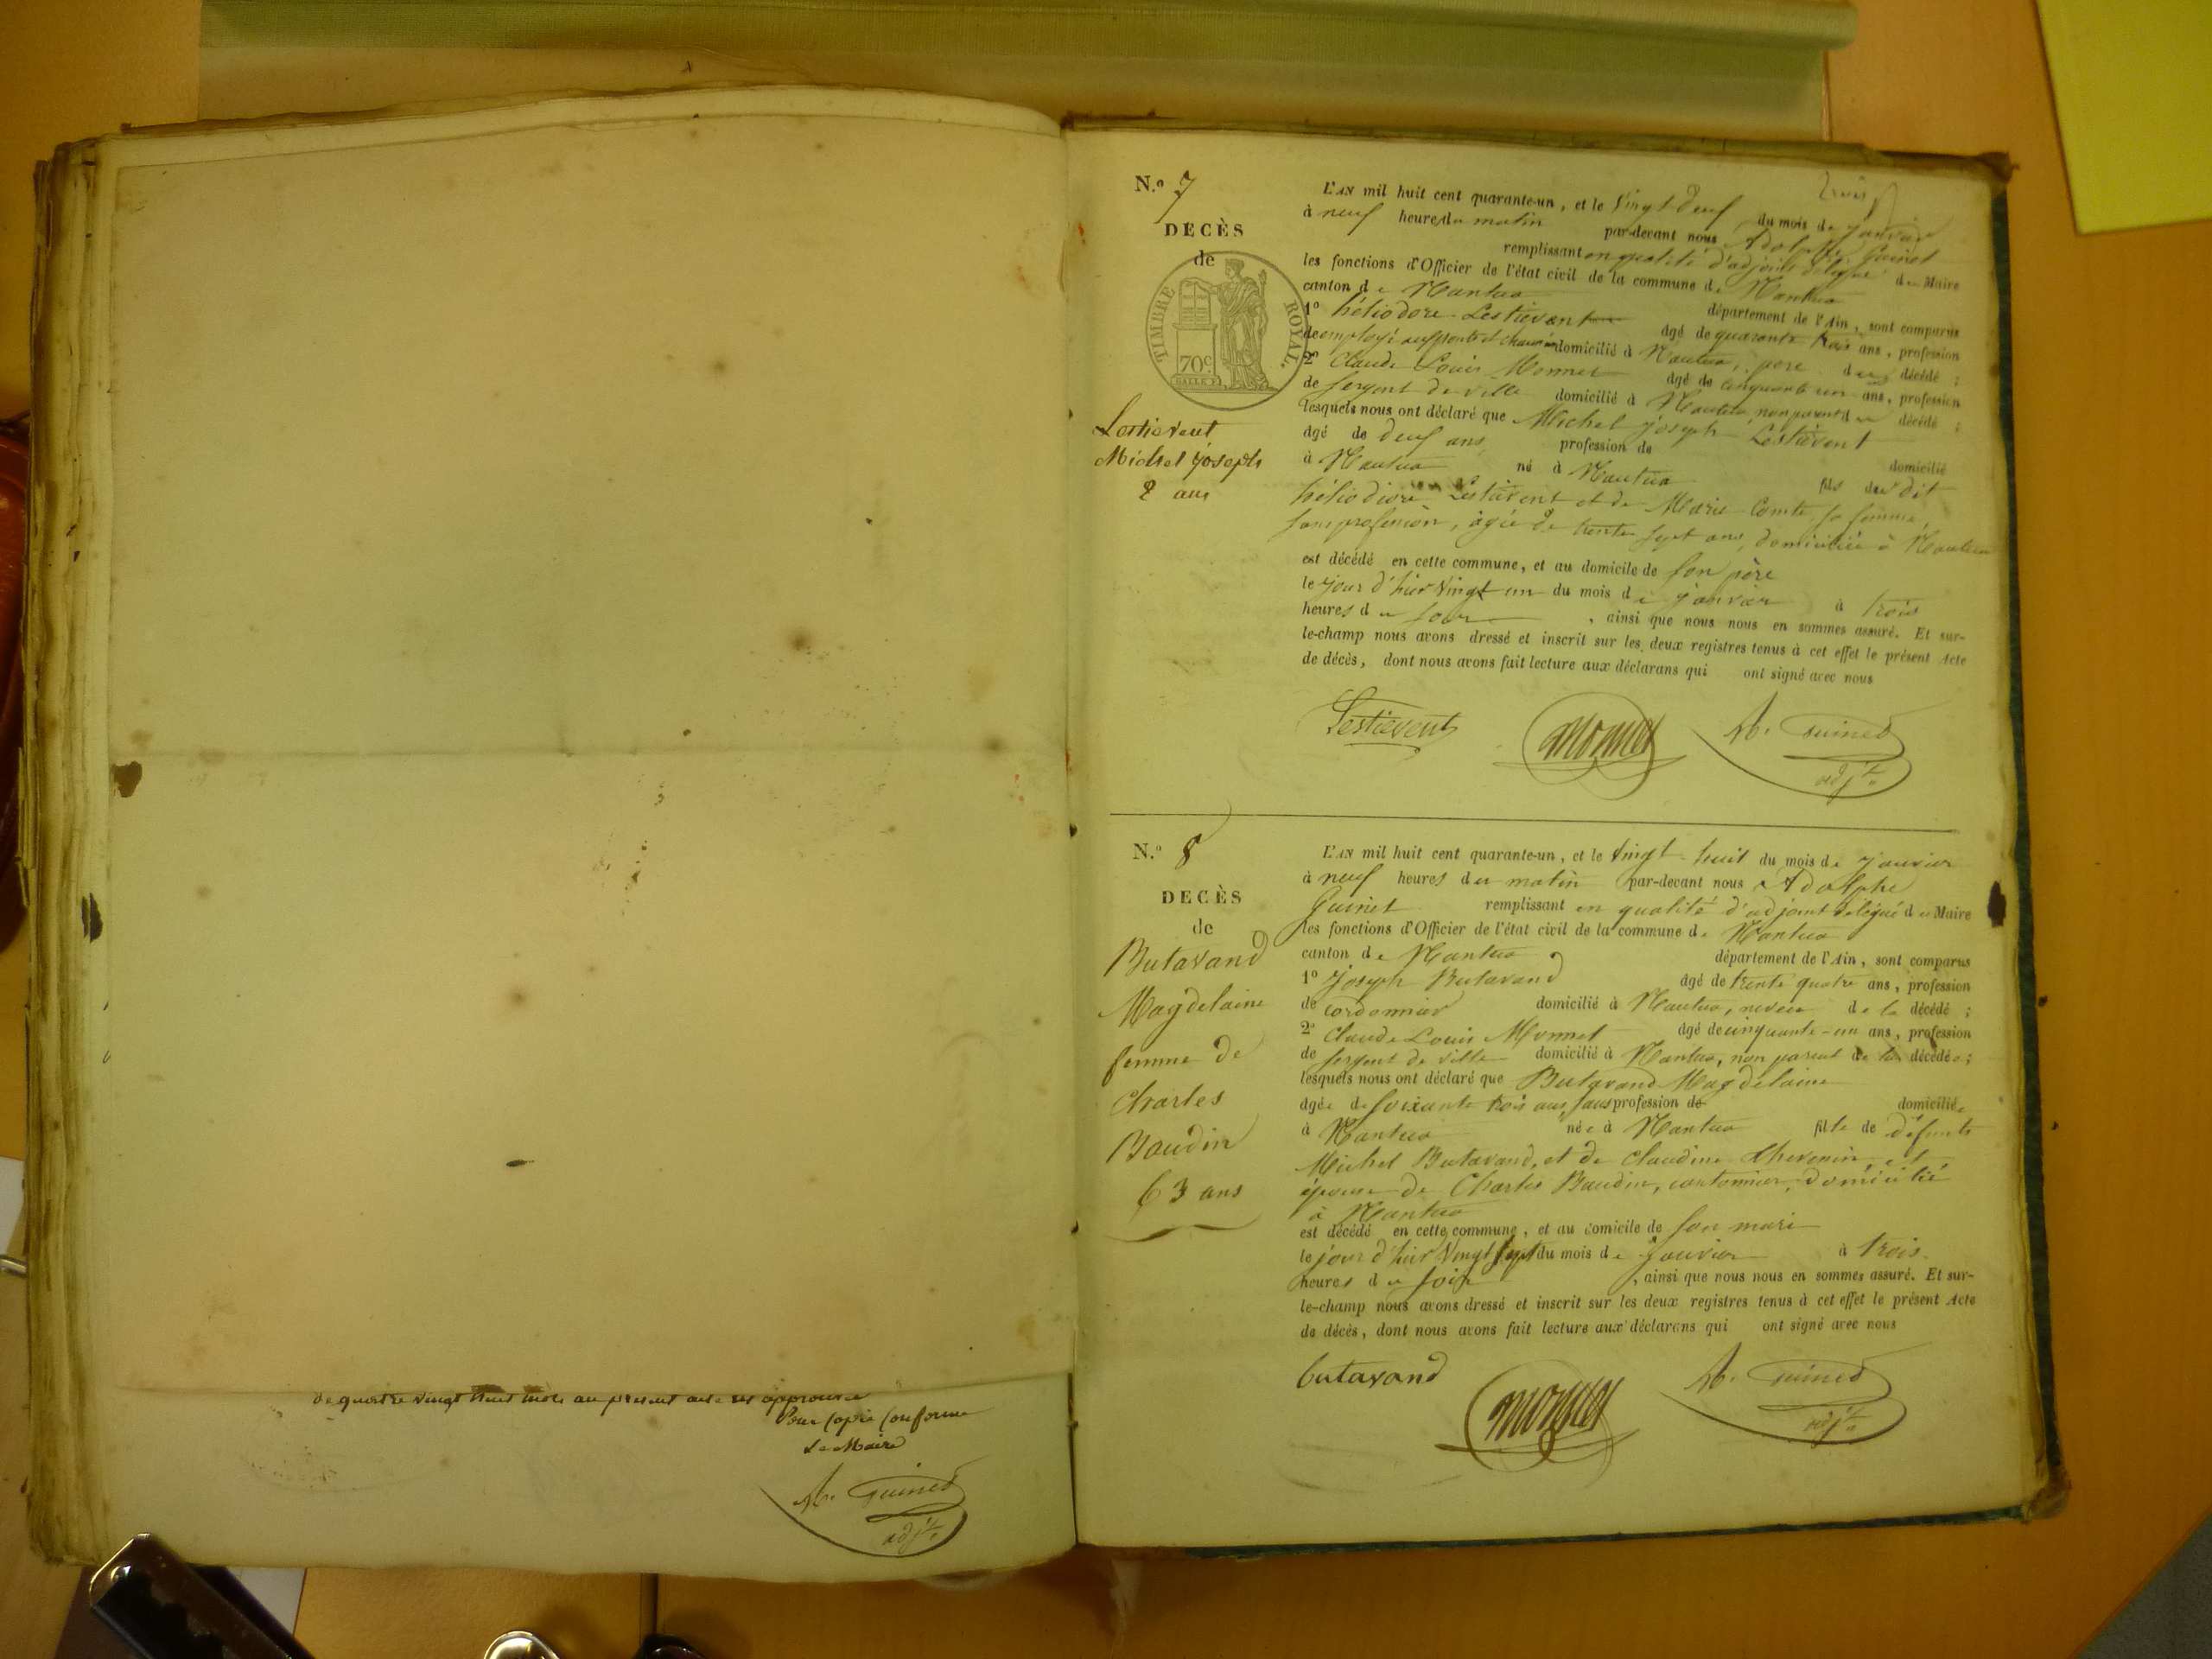 de quatre vingt huit mots au présent acte est approuvée
Pour copie conforme
Le Maire
Ab. Guinet
adjt.
trois
N.º 7
DÉCÈS
de
TIMBRE ROYAL.
70c
Lestievent
Michel Joseph
2 ans
L'AN mil huit cent quarante-un, et le vingt-deux du mois de janvier
à neuf heures du matin par-devant nous Adolphe Guinet
remplissant en qualité d'adjoint délégué du Maire
les fonctions d'Officier de l'état civil de la commune de Nantua
canton de Nantua département de l'Ain, sont comparus
1º héliodore Lestievent âgé de quarante trois ans, profession
de employé aux ponts et chaussées domicilié à Nantua, père du décédé ;
2º Claude Louis Monnet âgé de cinquante un ans, profession
de sergent de ville domicilié à Nantua, non parent du décédé ;
lesquels nous ont déclaré que Michel joseph Lestievent
âgé de deux ans profession de domicilié
à Nantua né à Nantua fils dudit
héliodore Lestievent et de Marie Comte sa femme,
sans profession, âgée de trente sept ans, domiciliée à Nantua
est décédé en cette commune, et au domicile de son père
le jour d'hier vingt un du mois de janvier à trois
heures du soir, ainsi que nous nous en sommes assuré. Et sur-
le-champ nous avons dressé et inscrit sur les deux registres tenus à cet effet le présent Acte
de décès, dont nous avons fait lecture aux déclarans qui ont signé avec nous
Lestievent Monnet Ab. Guinet
adjt.
N.º 8
DÉCÈS
de
Butavand
Magdelaine
femme de
Charles
Baudin
63 ans
L'AN mil huit cent quarante-un, et le vingt-huit du mois de janvier
à neuf heures du matin par-devant nous Adolphe
Guinet remplissant en qualité d'adjoint délégué du Maire
les fonctions d'Officier de l'état civil de la commune de Nantua
canton de Nantua département de l'Ain, sont comparus
1º Joseph Butavand âgé de trente quatre ans, profession
de cordonnier domicilié à Nantua, neveu de la décédé ;
2º Claude Louis Monnet âgé de cinquante-un ans, profession
de sergent de ville domicilié à Nantua, non parent de la décédée ;
lesquels nous ont déclaré que Butavand Magdelaine
âgée de soixante trois ans, sans profession de domiciliée
à Nantua née à Nantua fille de défunts
Michel Butavand, et de Claudine Thevenin, et
épouse de Charles Baudin, cantonnier, domicilié
à Nantua
est décédé en cette commune, et au domicile de son mari
le jour d'hier vingt sept du mois de janvier à trois
heures du soir, ainsi que nous nous en sommes assuré. Et sur-
le-champ nous avons dressé et inscrit sur les deux registres tenus à cet effet le présent Acte
de décès, dont nous avons fait lecture aux déclarans qui ont signé avec nous
butavand Monnet Ab. Guinet
adjt.